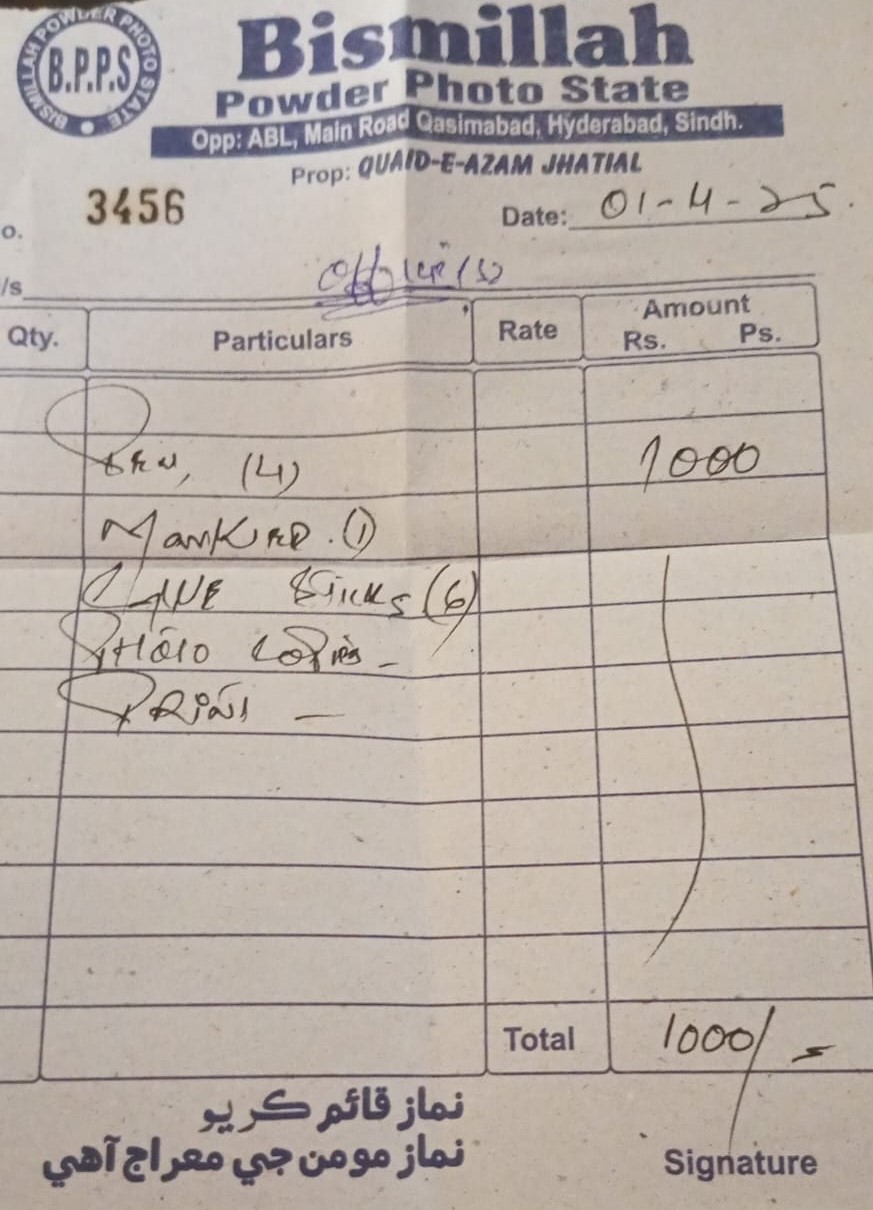 BISMILLAH POWDER PHOTO STATE
B.P.P.S
Bismillah
Powder Photo State
Opp: ABL, Main Road Qasimabad, Hyderabad, Sindh.
Prop: QUAID-E-AZAM JHATIAL
o. 3456 Date: 01-4-25
/s
Qty. Particulars Rate Amount
Rs. Ps.
(4) 1000
(1)
Sticks (6)
Photo Copies -
Print -
Total 1000/-
نماز قائم ڪريو
نماز مومن جي معراج آهي
Signature